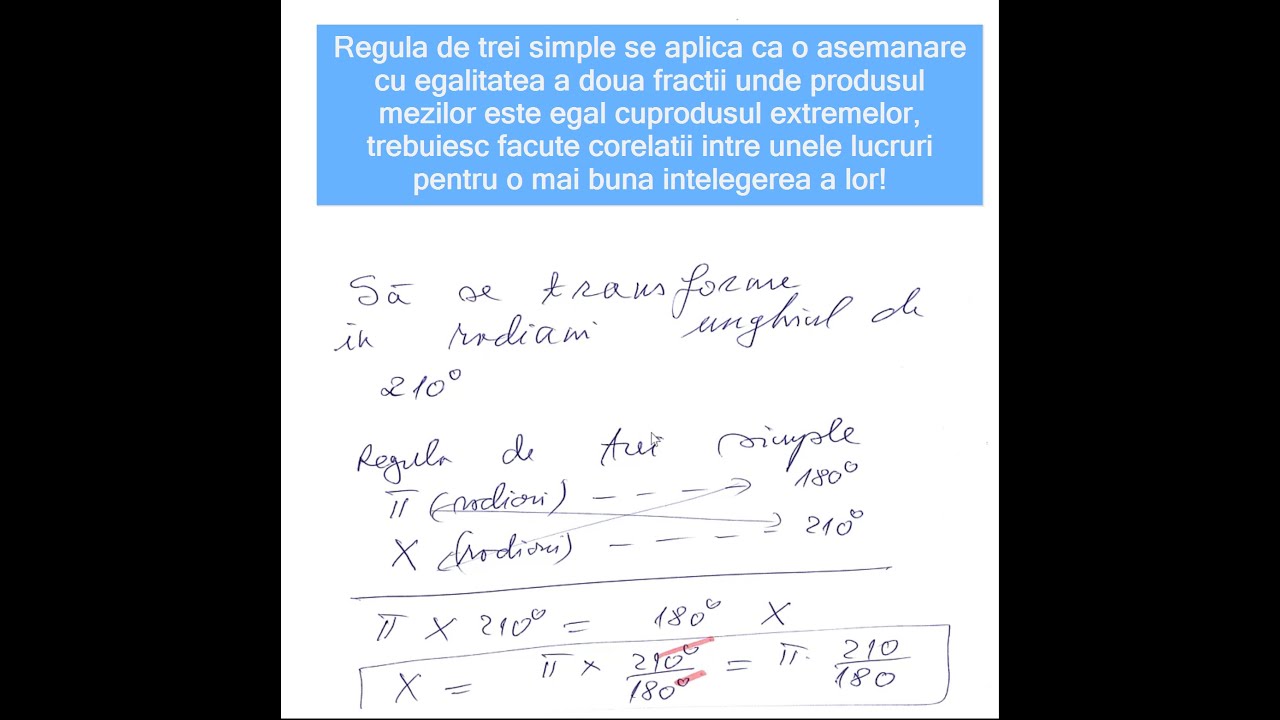 Regula de trei simple se aplica ca o asemanare
cu egalitatea a doua fractii unde produsul
mezilor este egal cuprodusul extremelor,
trebuiesc facute corelatii intre unele lucruri
pentru o mai buna intelegerea a lor!
Să se transforme
in radiani unghiul de
210°
Regula de trei simple
π (radiani) - - - 180°
X (radiani) - - - - 210°
π × 210° = 180° X
X = π × 210°/180° = π · 210/180